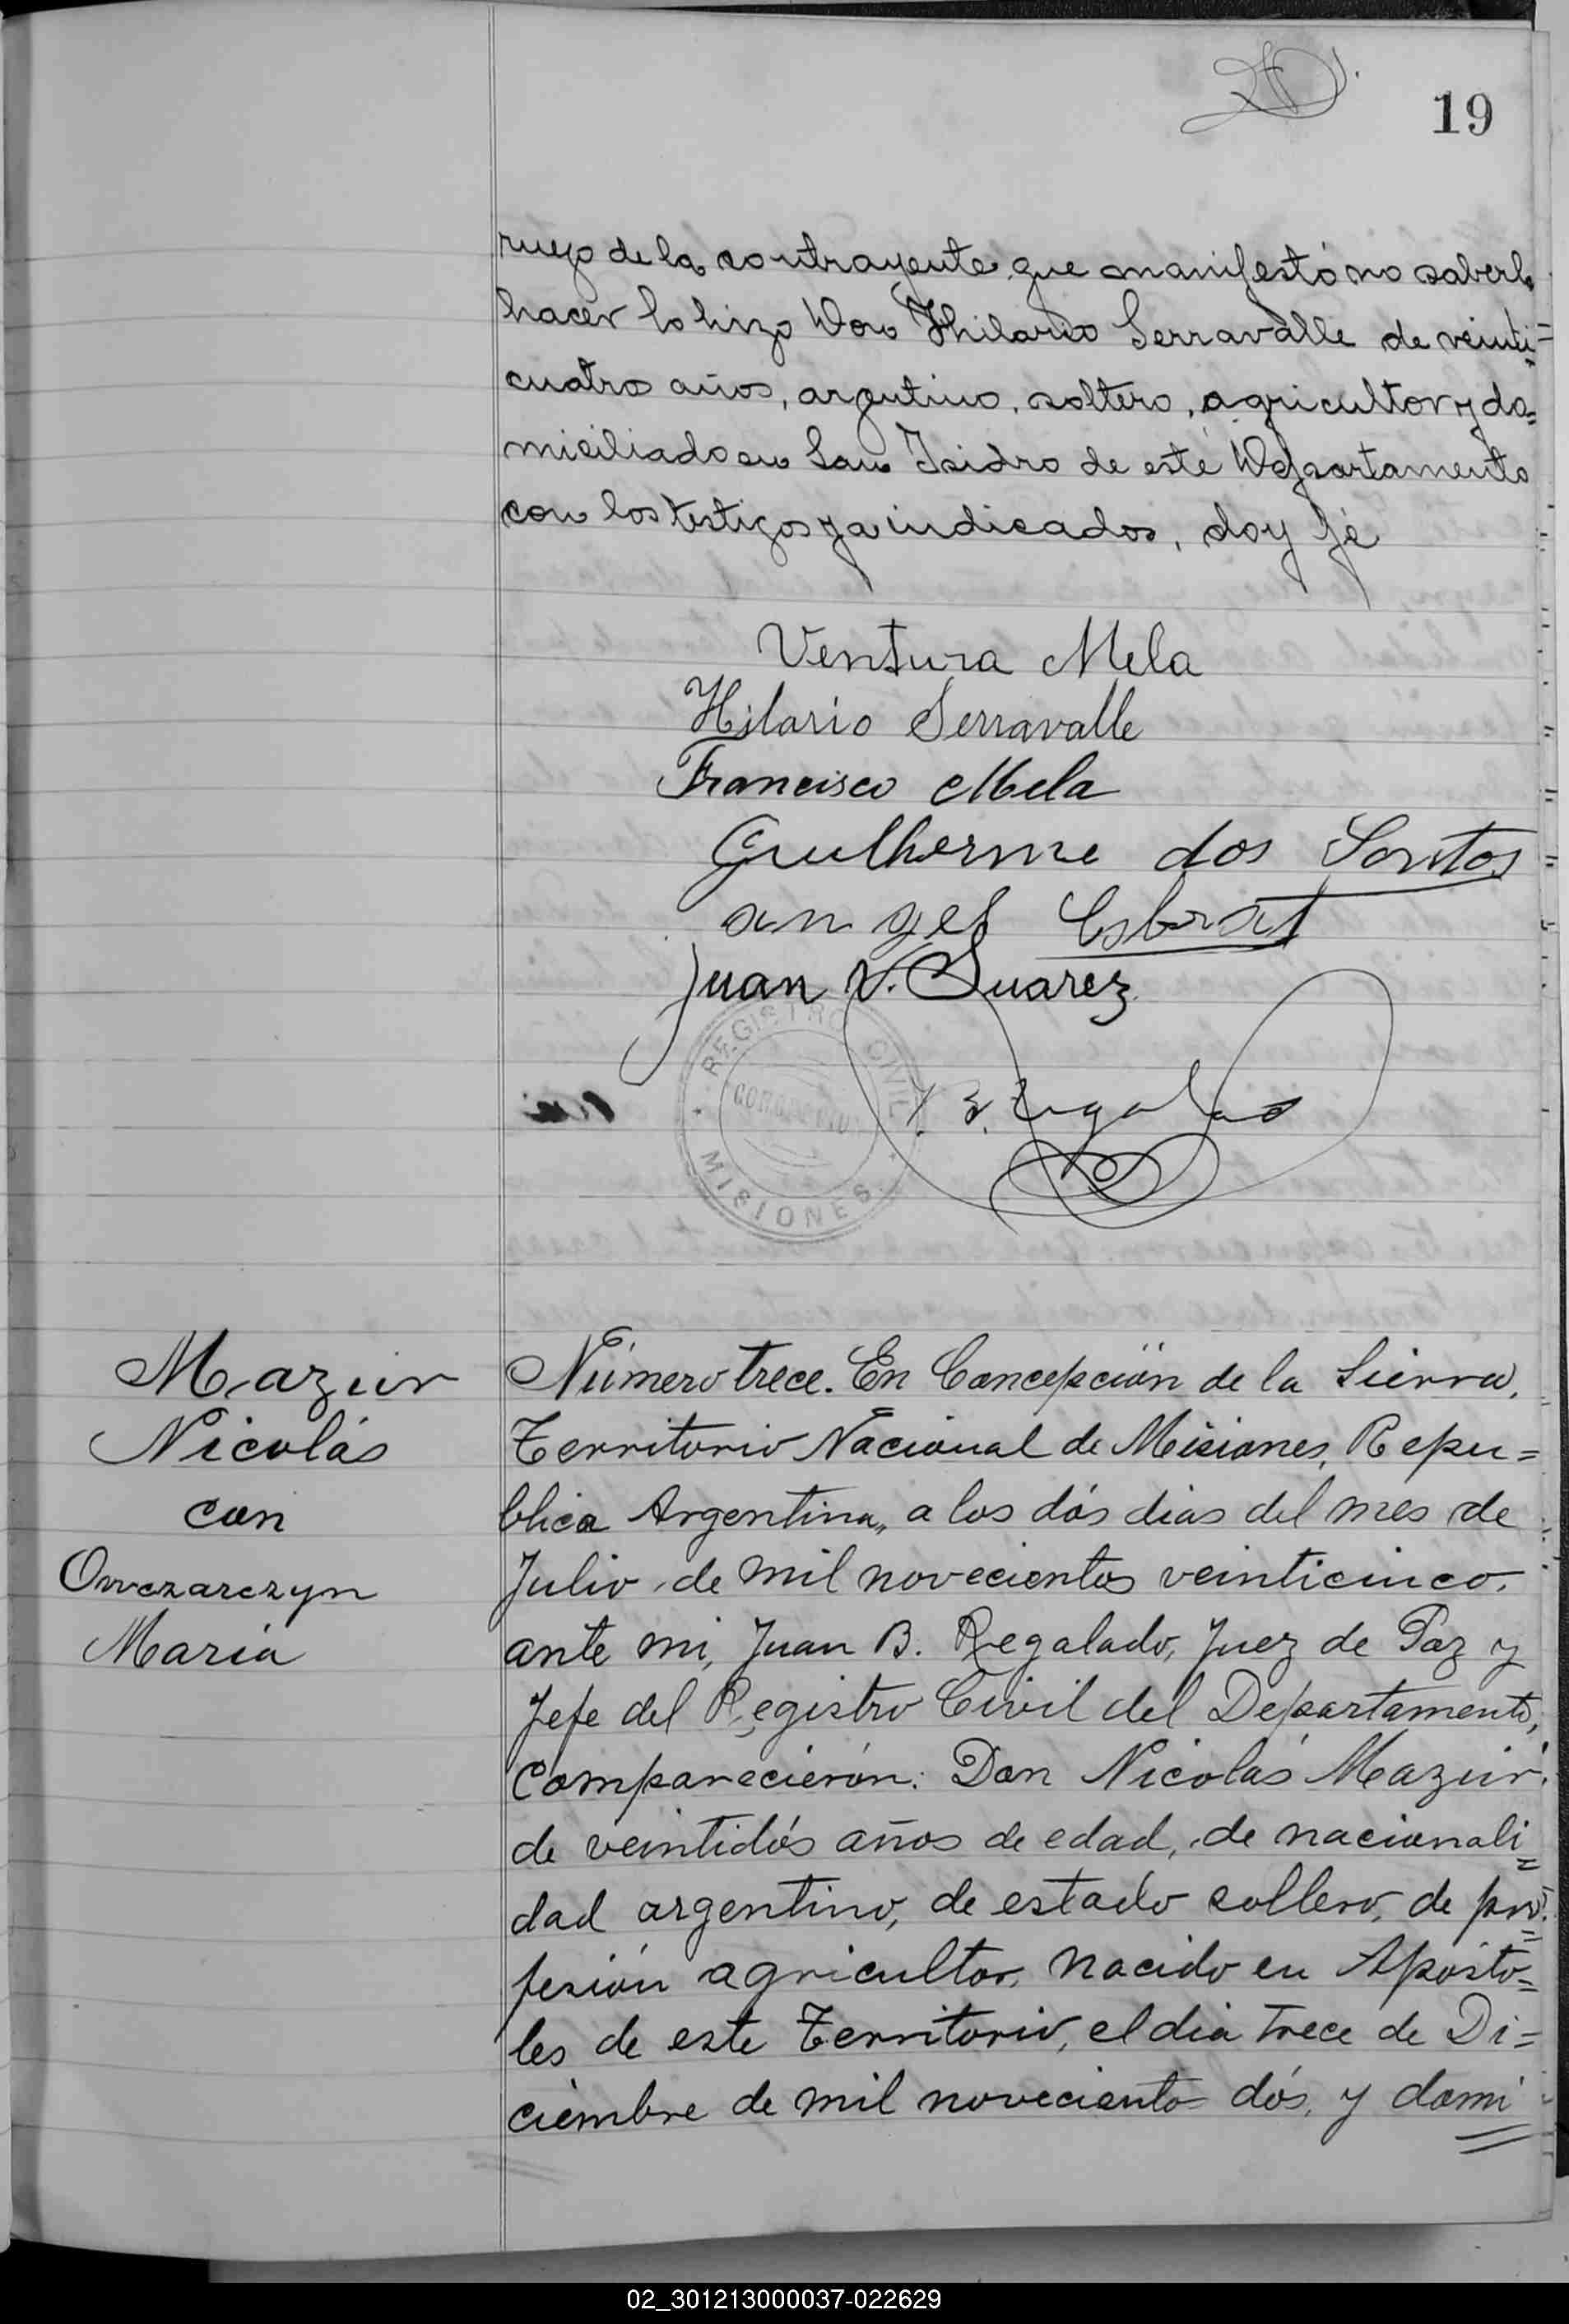 19
ruego de la contrayente que manifestó no saberlo
hacer lo hizo Don Hilario Serravalle de veinti=
cuatro años, argentino, soltero, agricultor y do=
miciliado en San Isidro de este Departamento
con los testigos ya indicados, doy fé
Ventura Mela
Hilario Serravalle
Francisco Mela
Guilherme dos Santos
angel Esbrat
Juan V. Suarez
REGISTRO CIVIL
CONCEPCION
MISIONES
J. B. Regalado
Mazur
Nicolás
con
Owczarczyn
Maria
Número trece. En Concepción de la Sierra,
Territorio Nacional de Misiones, Repu=
blica Argentina, a los dós dias del mes de
Julio de mil novecientos veinticinco,
ante mi, Juan B. Regalado, Juez de Paz y
Jefe del Registro Civil del Departamento,
Comparecierón: Don Nicolás Mazur,
de veintidós años de edad, de nacionali=
dad argentino, de estado soltero, de pro=
fesión agricultor, nacido en Apósto=
les de este Territorio, el dia trece de Di=
ciembre de mil noveciento dós, y domi=
02_301213000037-022629